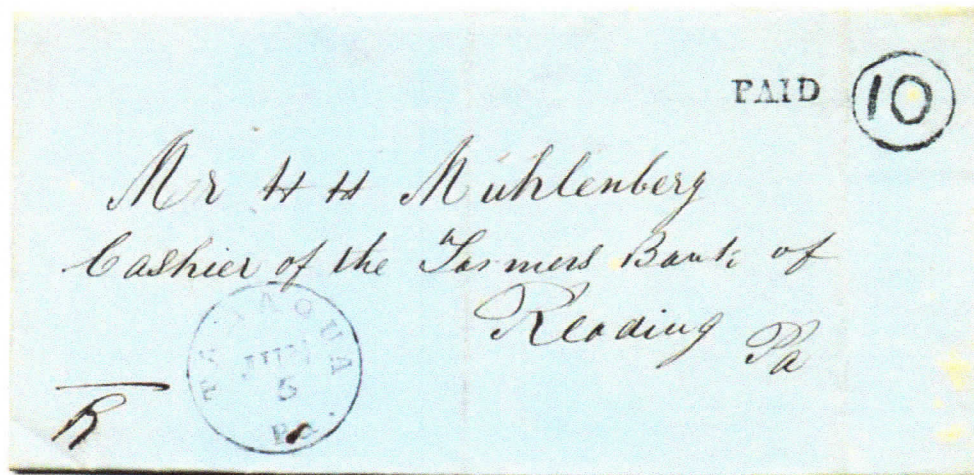 PAID 10
Mr H H Muhlenberg
Cashier of the Farmers Bank of
Reading Pa
TAMAQUA
JUN
5
Pa.
R